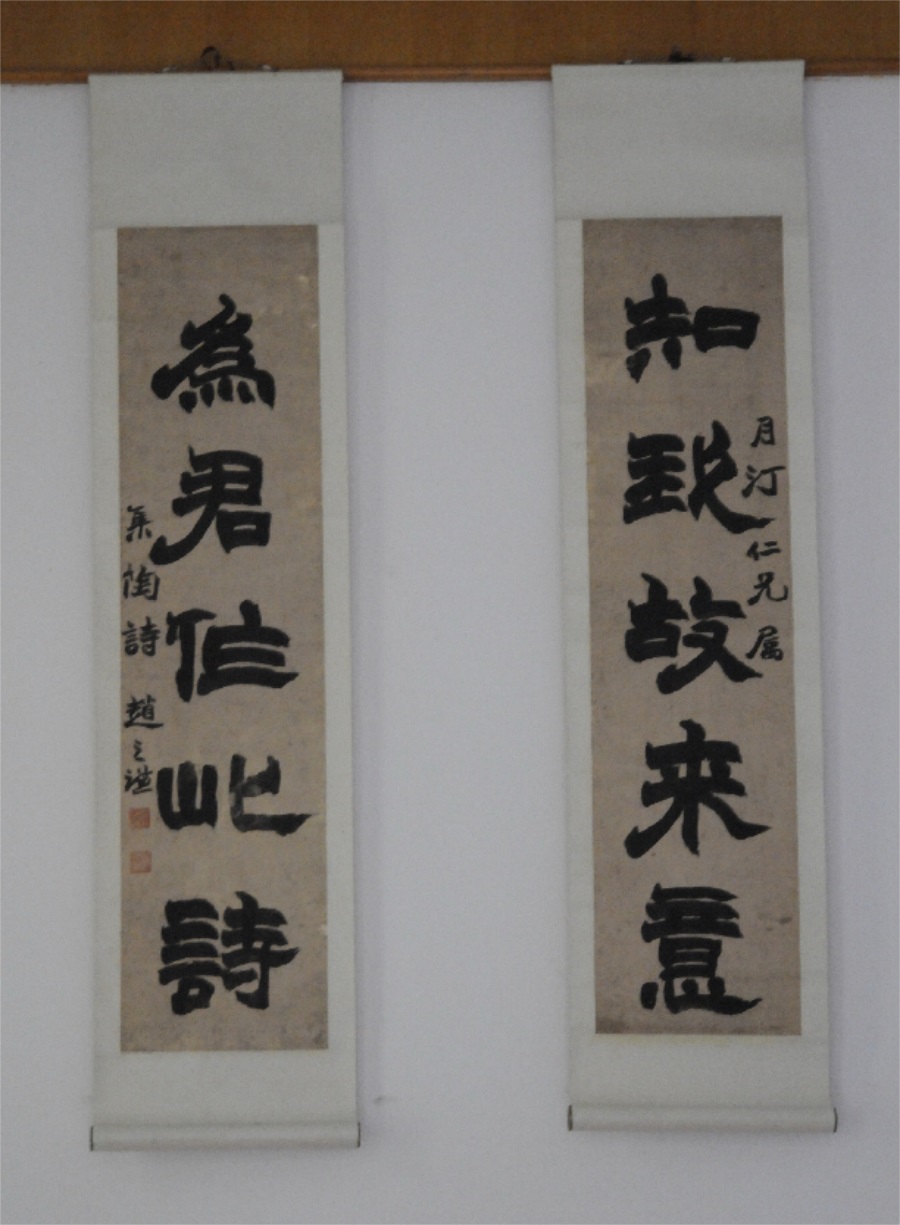 月汀仁兄属
知我故来意
為君作此詩
集陶詩 趙之謙